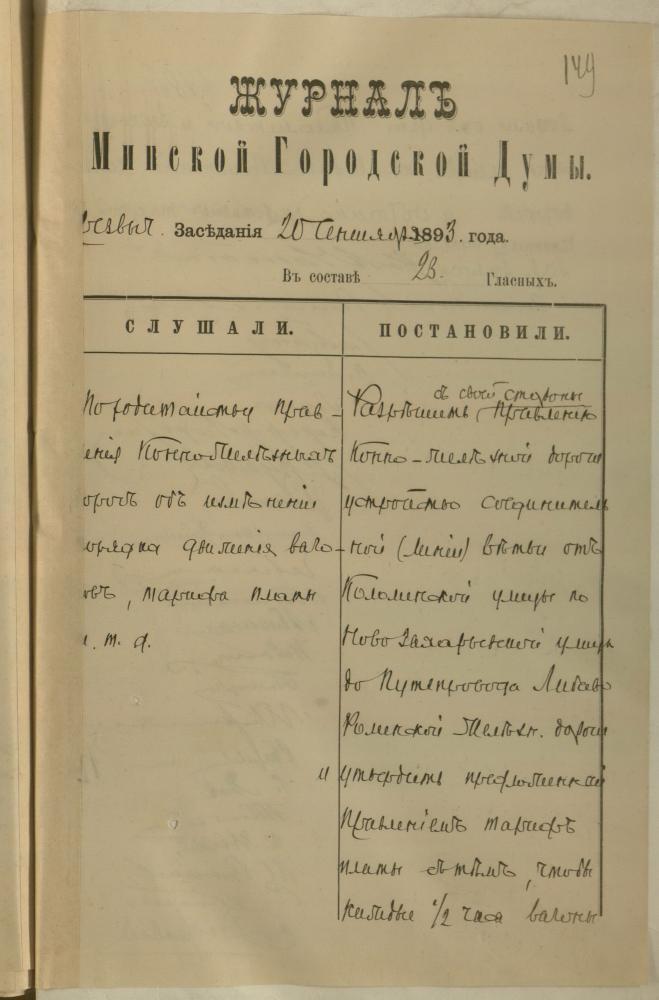 149
ЖУРНАЛЪ
Минской Городской Думы.
Засѣданія 20 Сентября 1893. года.
Въ составѣ 23. Гласныхъ.
СЛУШАЛИ.
По ходатайству Прав-
енія Конножелѣзныхъ
орогъ объ измѣненіи
орядка движенія ваго-
овъ, тарифа платы
и. т. д.
ПОСТАНОВИЛИ.
съ своей стороны
Разрѣшить Правленію
Конно-желѣзной дороги
устройство соединитель
ной (линіи) вѣтви отъ
Коломенской улицы по
Ново Захарьевской улицѣ
до Путепровода Либаво
Роменской Желѣзн. дороги
и утвердить предложенный
Правленіемъ тарифъ
платы съ тѣмъ, чтобы
каждые 1/2 часа вагоны